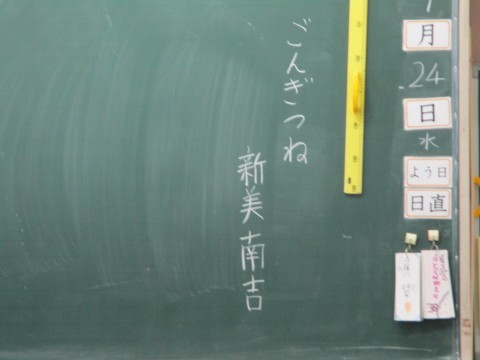 ごんぎつね
新美南吉
月
24
日
水
よう日
日直